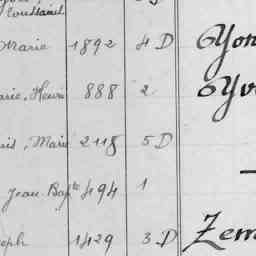 Toussaint
Marie 1892 4 D Yon
arie, Henri 888 2 Yv
is, Marie 2118 5 D
Jean Bapte 494 1
seph 1429 3 D Zerr